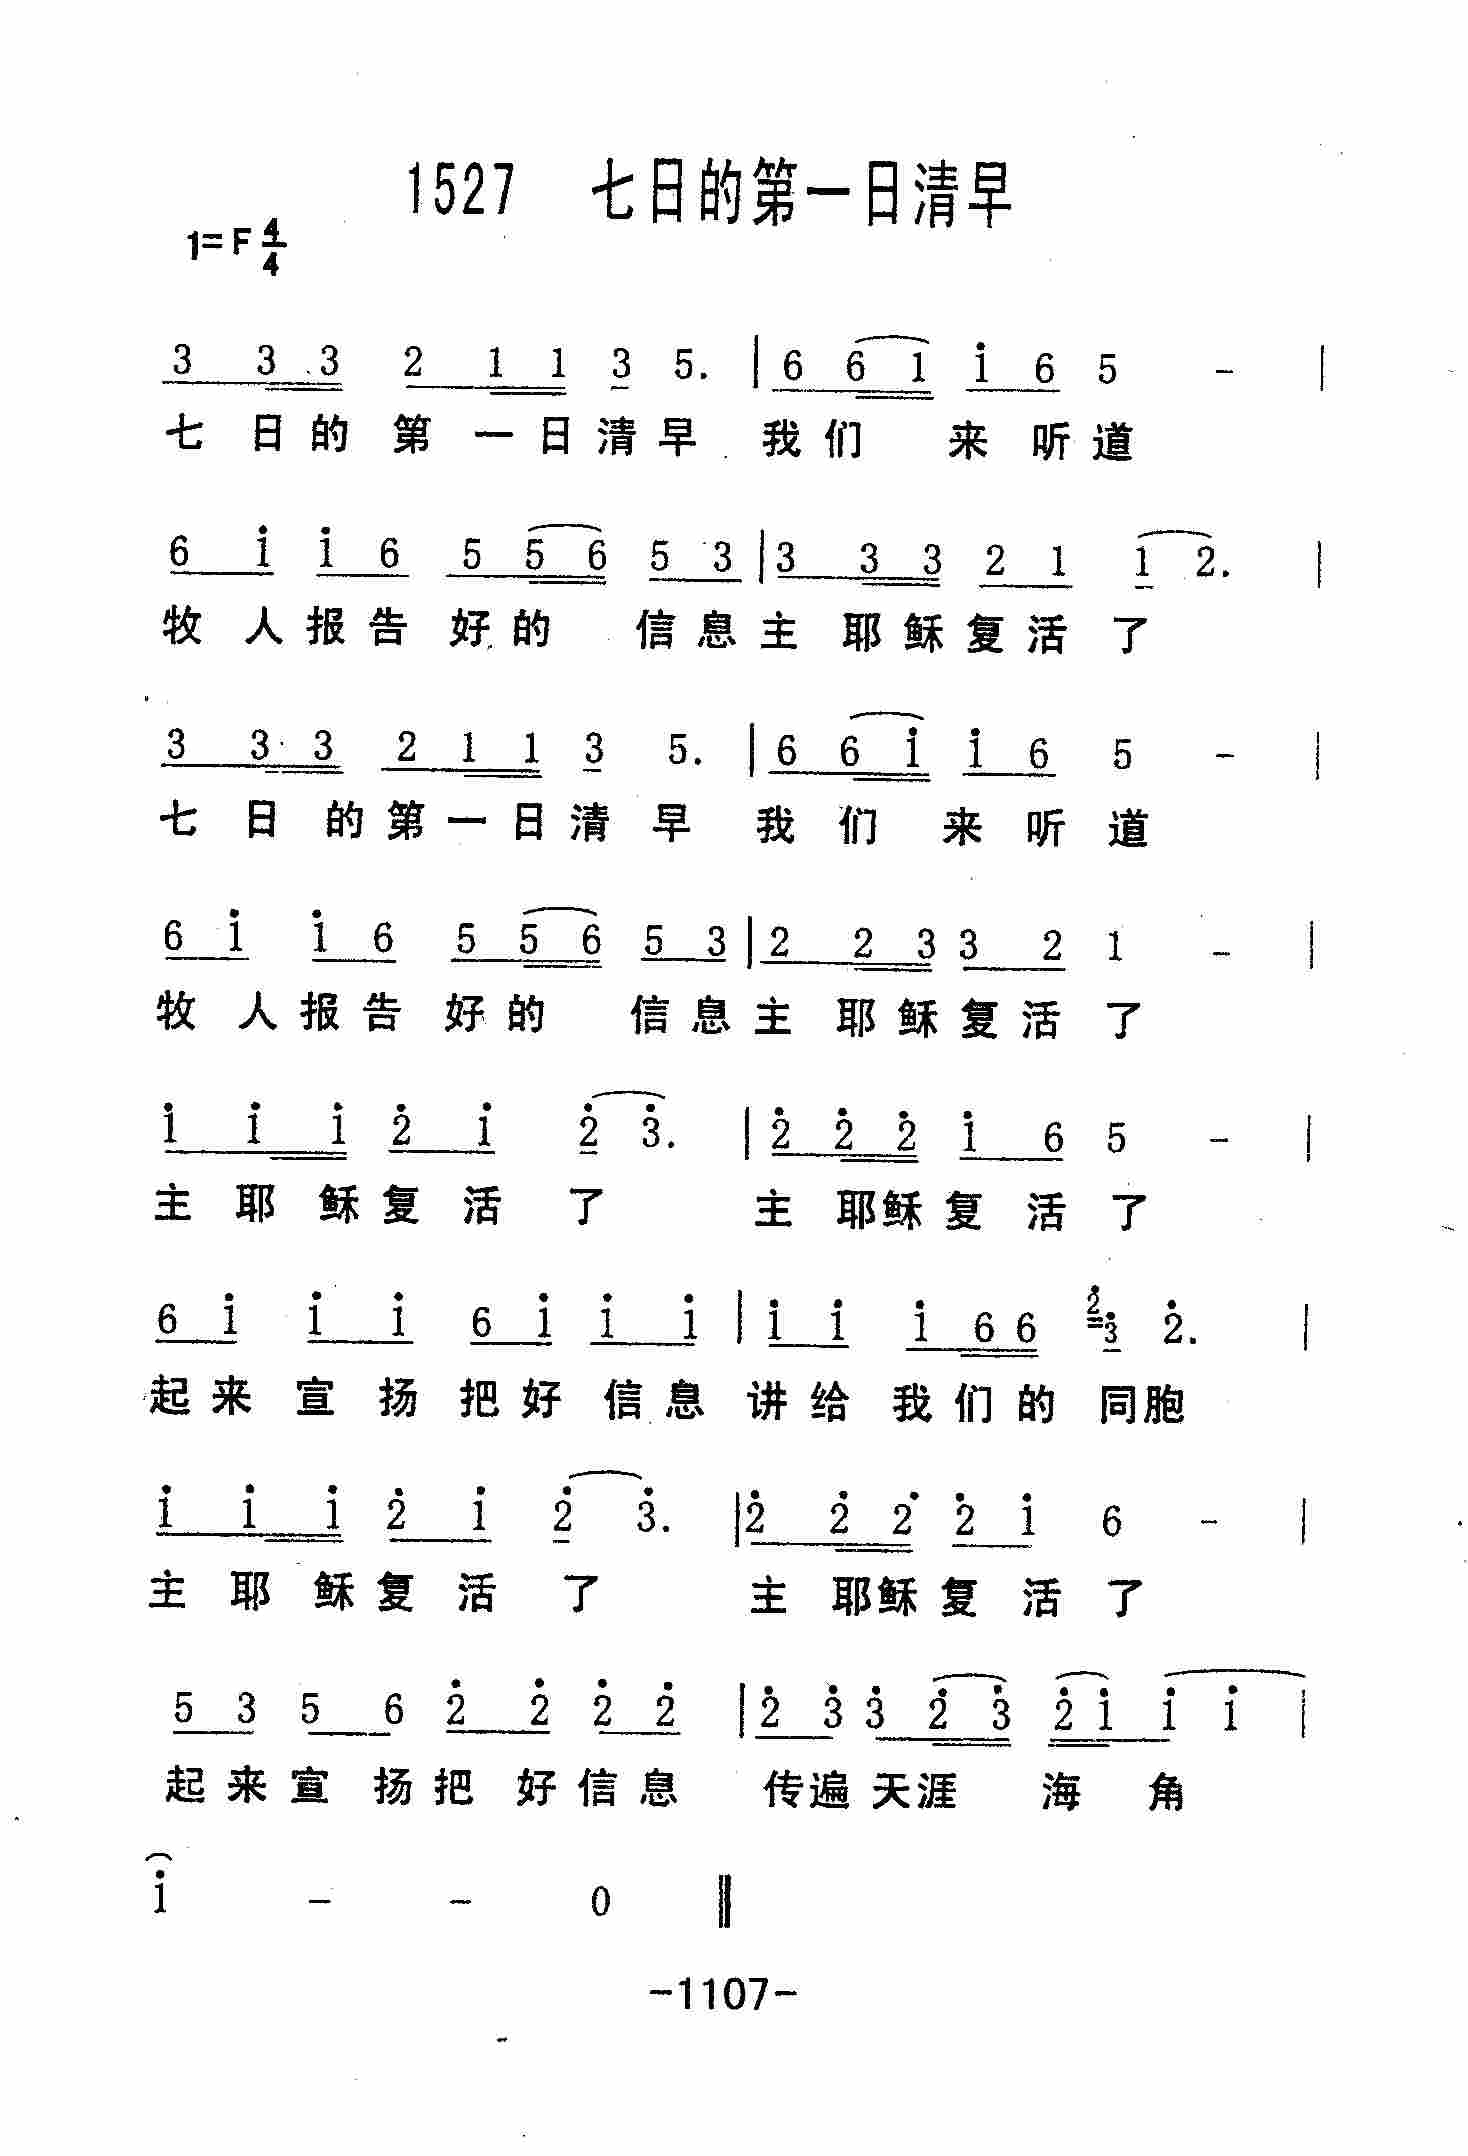 1527 七日的第一日清早
1=F 4/4
3 3 3 2 1 1 3 5. | 6 6 1 i̇ 6 5 - |
七 日 的 第 一 日 清 早 我 们 来 听 道
6 i̇ i̇ 6 5 5 6 5 3 | 3 3 3 2 1 1 2. |
牧 人 报 告 好 的 信 息 主 耶 稣 复 活 了
3 3 3 2 1 1 3 5. | 6 6 i̇ i̇ 6 5 - |
七 日 的 第 一 日 清 早 我 们 来 听 道
6 i̇ i̇ 6 5 5 6 5 3 | 2 2 3 3 2 1 - |
牧 人 报 告 好 的 信 息 主 耶 稣 复 活 了
i̇ i̇ i̇ 2̇ i̇ 2̇ 3̇. | 2̇ 2̇ 2̇ i̇ 6 5 - |
主 耶 稣 复 活 了 主 耶 稣 复 活 了
6 i̇ i̇ i̇ 6 i̇ i̇ i̇ | i̇ i̇ i̇ 6 6 2̇ 3̇ 2̇. |
起 来 宣 扬 把 好 信 息 讲 给 我 们 的 同 胞
i̇ i̇ i̇ 2̇ i̇ 2̇ 3̇. | 2̇ 2̇ 2̇ 2̇ i̇ 6 - |
主 耶 稣 复 活 了 主 耶 稣 复 活 了
5 3 5 6 2̇ 2̇ 2̇ 2̇ | 2̇ 3̇ 3̇ 2̇ 3̇ 2̇ i̇ i̇ i̇ |
起 来 宣 扬 把 好 信 息 传 遍 天 涯 海 角
i̇ - - 0 ‖
-1107-